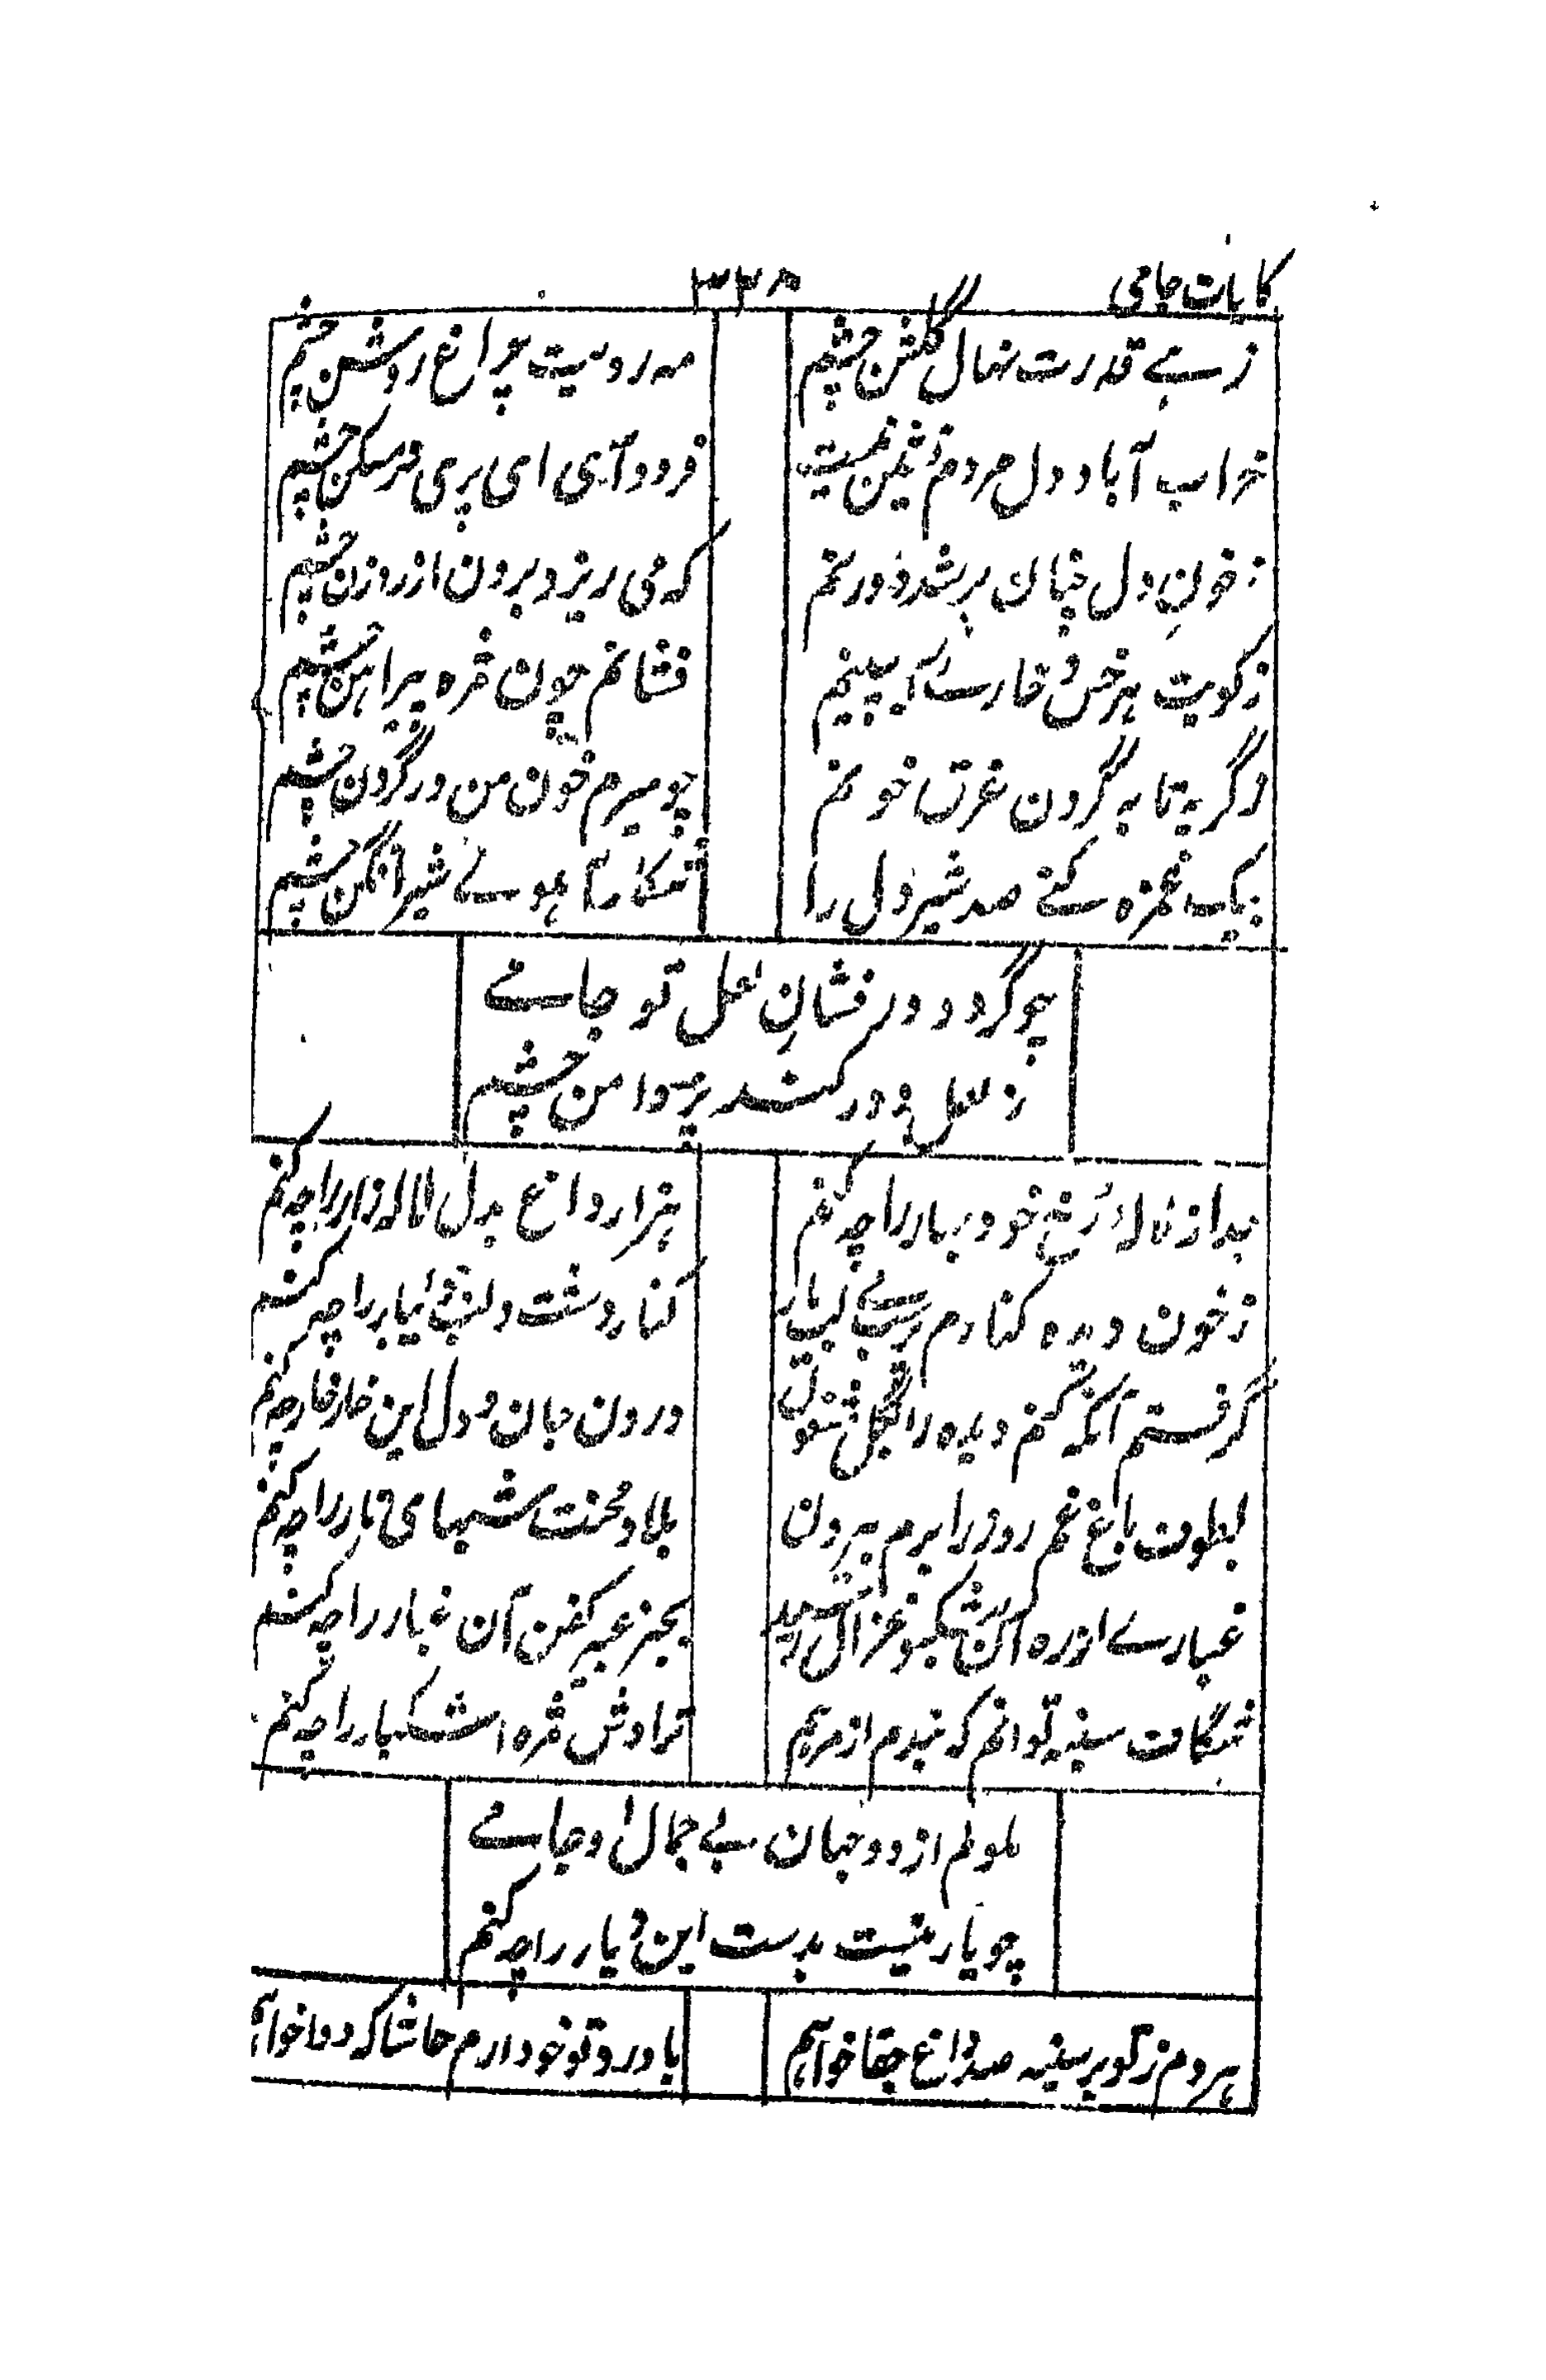 کلیات جامی
۳۳۸
زہے قدرت نہال گلشن چشم
مہ رویت چراغ روشن چشم
خراب آباد دل مردم نشین نیست
فرود آی ای پری در مسکن چشم
ز خون دل چنان پر شد درونم
که می ریزد برون از روزن چشم
ز کویت ہر خس و خارے کہ بینم
فشانم چون مژه پیراہن چشم
ز گریہ تا بہ گردن غرق خونم
چو میرم خون من در گردن چشم
بیک غمزه کنے صد شیر دل را
شکار آہوے شیر افگن چشم
چو گردد در فشان لعل تو جامے
ز لعل و در کند پر دامن چشم
جدا ز لالۂ رخ خود بہار را چہ کنم
ہزار داغ بدل لالہ زار را چہ کنم
ز خون دیده کنارم لب
کنار دشت و لب جویبار را چہ کنم
گرفتم آنکہ کنم دیده را بگل مشغول
درون جان و دل این خار خار چہ کنم
بطوف باغ غم روز را برم بیرون
بلا و محنت شبہای تار را چہ کنم
غبارے از ره آن مشکبو غزال رسید
بجز عبیر کفن آن غبار را چہ کنم
شگاف سینہ توانم کہ بندم از مرہم
تراوش مژه اشکبار را چہ کنم
ملولم از دو جہان بے جمال او جامے
چو یار نیست بدست این دیار را چہ کنم
ہر دم ز تو بر سینہ صد داغ جفا خواہم
با درد تو خود دارم حاشا کہ دوا خواہم